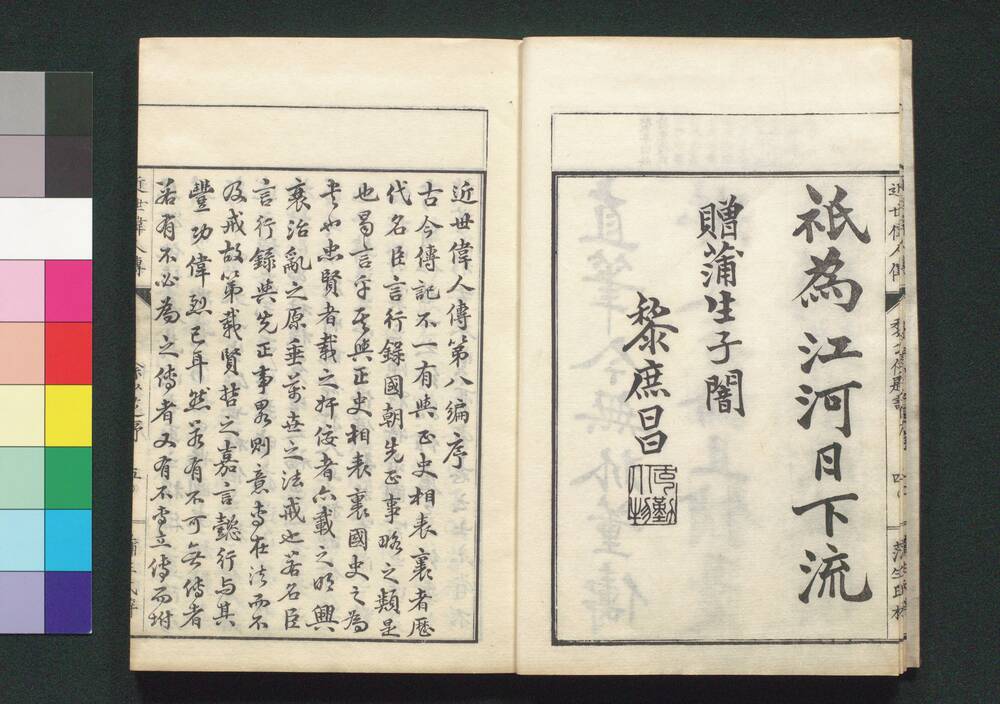 祇為江河日下流
贈蒲生子闇
黎庶昌
近世偉人傳第八編序
古今傳記不一有與正史相表裏者歷
代名臣言行錄國朝先正事略之類是
也曷言乎其與正史相表裏國史之為
書也忠賢者載之奸佞者亦載之明興
衰治亂之原垂萬世之法戒也若名臣
言行錄與先正事畧則意專在法而不
及戒故第載賢哲之嘉言懿行与其
豐功偉烈已耳然若有不可無傳者
若有不必為之傳者又有不書立傳而附
近世偉人傳